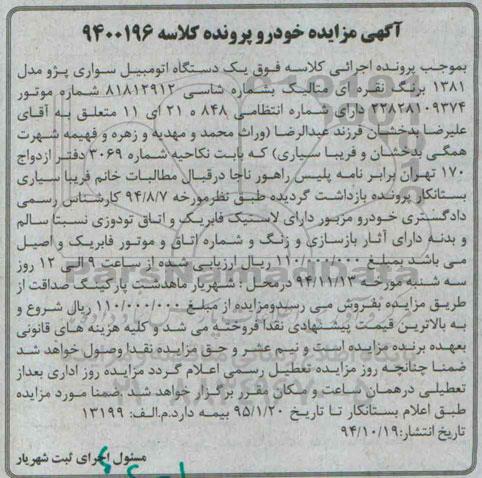 آگهی مزایده خودرو پرونده کلاسه ۹۴۰۰۱۹۶
بموجب پرونده اجرائی کلاسه فوق یک دستگاه اتومبیل سواری پژو مدل
۱۳۸۱ برنگ نقره ای متالیک بشماره شاسی ۸۱۸۱۳۹۱۲ شماره موتور
۲۲۸۲۸۱۰۹۳۷۴ دارای شماره انتظامی ۸۴۸ ه ۲۱ ای ۱۱ متعلق به آقای
علیرضا بدخشان فرزند عبدالرضا (وراث محمد و مهدیه و زهره و فهیمه شهرت
همگی بدخشان و فریبا سیاری) که بابت نکاحیه شماره ۳۰۶۹ دفتر ازدواج
۱۷۰ تهران برابر نامه پلیس راهور ناجا درقبال مطالبات خانم فریبا سیاری
بستانکار پرونده بازداشت گردیده طبق نظرمورخه ۹۴/۸/۷ کارشناس رسمی
دادگستری خودرو مزبور دارای لاستیک فابریک و اتاق تودوزی نسبتا سالم
و بدنه دارای آثار بازسازی و رنگ و شماره اتاق و موتور فابریک و اصیل
می باشد بمبلغ ۱۱۰/۰۰۰/۰۰۰ ریال ارزیابی شده از ساعت ۹ الی ۱۲ روز
سه شنبه مورخه ۹۴/۱۱/۱۳ درمحل: شهریار ماهدشت پارکینگ صداقت از
طریق مزایده بفروش می رسدومزایده از مبلغ ۱۱۰/۰۰۰/۰۰۰ ریال شروع و
به بالاترین قیمت پیشنهادی نقدا فروخته می شد و کلیه هزینه های قانونی
بعهده برنده مزایده است و نیم عشر و حق مزایده نقدا وصول خواهد شد
ضمنا چنانچه روز مزایده تعطیل رسمی اعلام گردد مزایده روز اداری بعداز
تعطیلی درهمان ساعت و مکان مقرر برگزار خواهد شد .ضمنا مورد مزایده
طبق اعلام بستانکار تا تاریخ ۹۵/۱/۲۰ بیمه دارد.م.الف: ۱۳۱۹۹
تاریخ انتشار:۹۴/۱۰/۱۹
مسئول اجرای ثبت شهریار
ParsNamadData